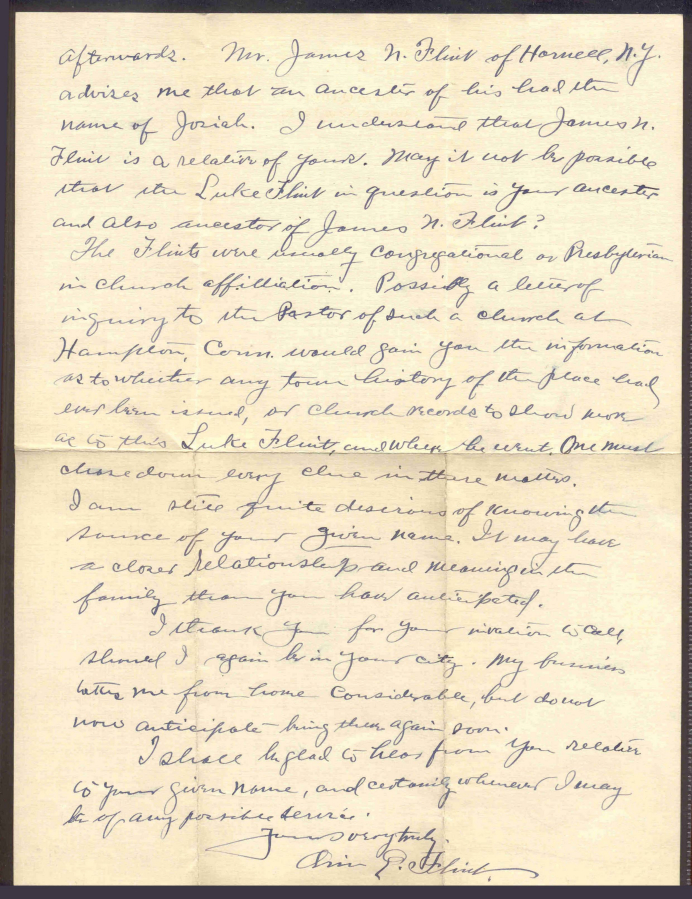 afterwards. Mr. James N. Flint of Hornell, N.Y.
advises me that an ancestor of his had the
name of Josiah. I understand that James N.
Flint is a relative of yours. May it not be possible
that the Luke Flint in question is your ancestor
and also ancestor of James N. Flint?
The Flints were usually Congregational or Presbyterian
in church affilliation. Possibly a letter of
inquiry to the Pastor of such a church at
Hampton, Conn. would gain you the information
as to whether any town history of the place had
ever been issued, or church records to show more
as to this Luke Flint, and where he went. One must
chase down every clue in these matters.
I am still quite desirous of knowing the
source of your given name. It may have
a closer relationship and meaning in the
family than you have anticipated.
I thank you for your invation to call,
should I again be in your city. My business
takes me from home considerable, but do not
now anticipate being there again soon.
I shall be glad to hear from you relative
to your given name, and certainly whenever I may
be of any possible service.
Yours very truly,
E. Flint.